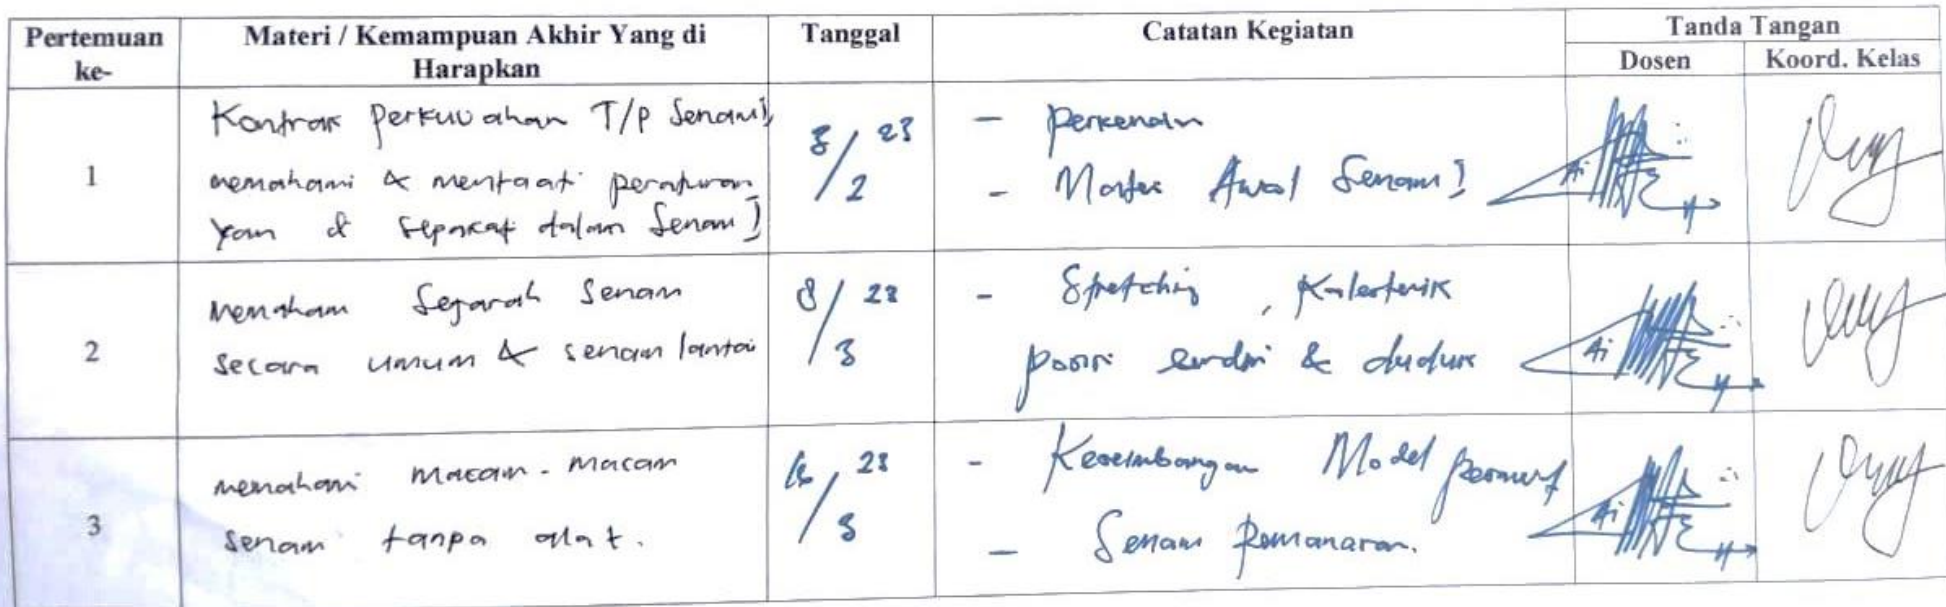 Pertemuan ke-
Materi / Kemampuan Akhir Yang di Harapkan
Tanggal
Catatan Kegiatan
Tanda Tangan
Dosen
Koord. Kelas
1
Kontrak Perkuliahan T/P Senam I,
memahami & mentaati peraturan
yan di sepakati dalam Senam I
23
2
- Perkenaln
- Materi Awal Senam I
2
Memaham Sejarah Senam
secara umum & senam lantai
8/3 23
- Stretching, Kalestenik
posisi & duduk
3
memahami macam-macam
senam tanpa alat.
23
3
- Keseimbangan Model
- Senam Pemanasan.